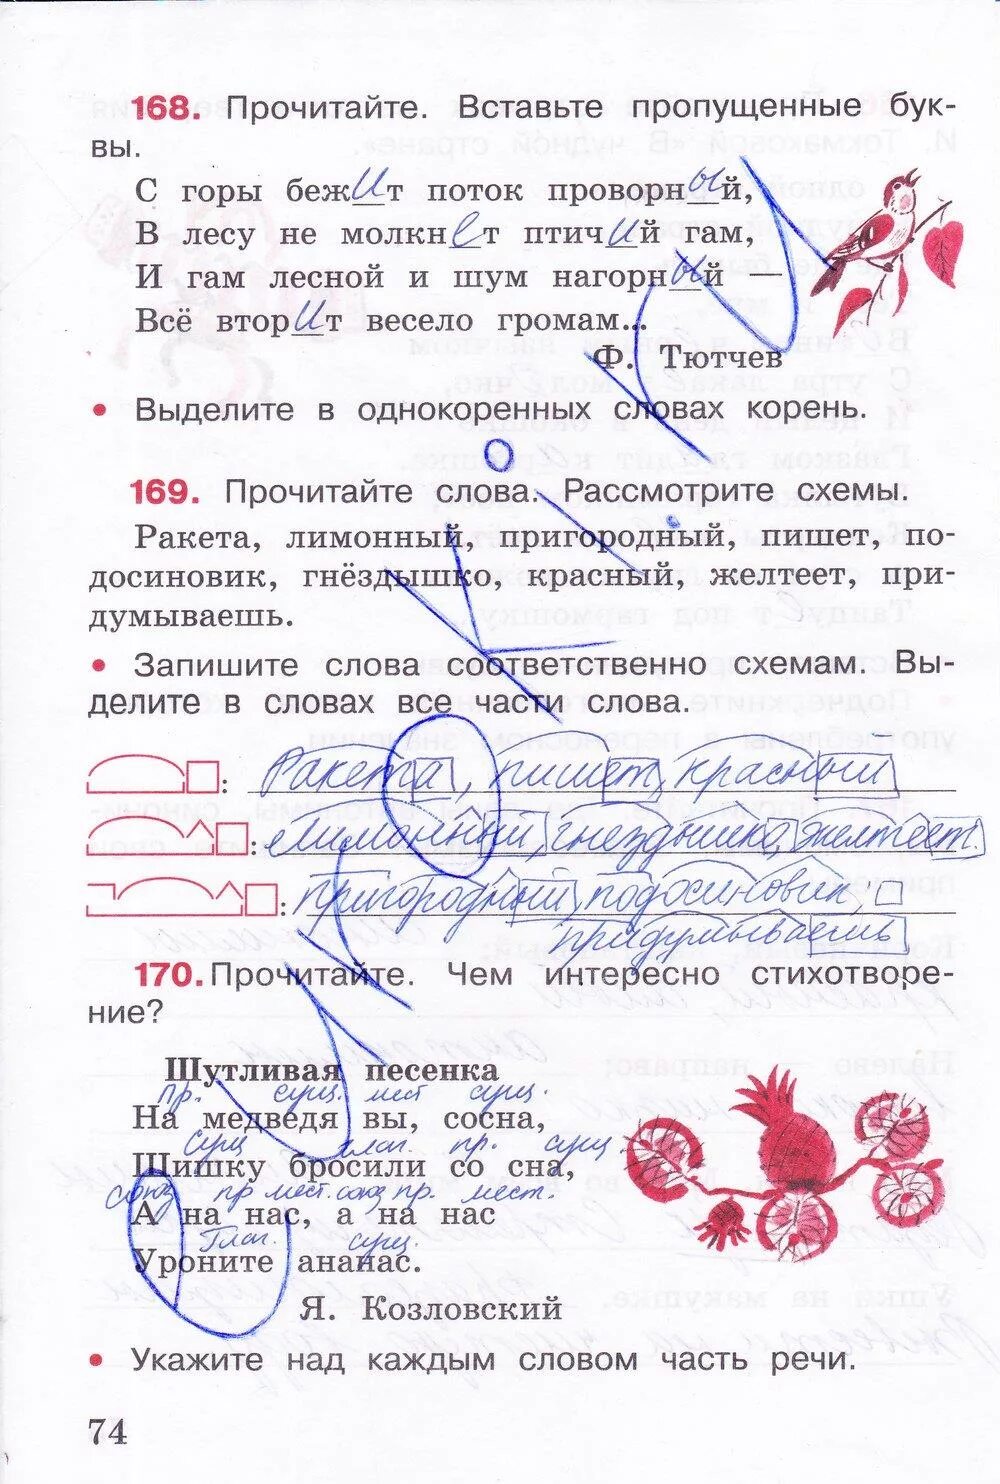 168. Прочитайте. Вставьте пропущенные бук-
вы.
С горы бежит поток проворный,
В лесу не молкнет птичий гам,
И гам лесной и шум нагорный —
Всё вторит весело громам...
Ф. Тютчев
• Выделите в однокоренных словах корень.
169. Прочитайте слова. Рассмотрите схемы.
Ракета, лимонный, пригородный, пишет, по-
досиновик, гнёздышко, красный, желтеет, при-
думываешь.
• Запишите слова соответственно схемам. Вы-
делите в словах все части слова.
: Ракета, пишет, красный
: лимонный, гнездышко, желтеет.
: пригородный, подосиновик,
придумываешь
170. Прочитайте. Чем интересно стихотворе-
ние?
Шутливая песенка
пр. сущ. мест сущ.
На медведя вы, сосна,
сущ глаг. пр. сущ.
Шишку бросили со сна,
союз пр мест. союз пр. мест.
А на нас, а на нас
Глаг. сущ.
Уроните ананас.
Я. Козловский
• Укажите над каждым словом часть речи.
74